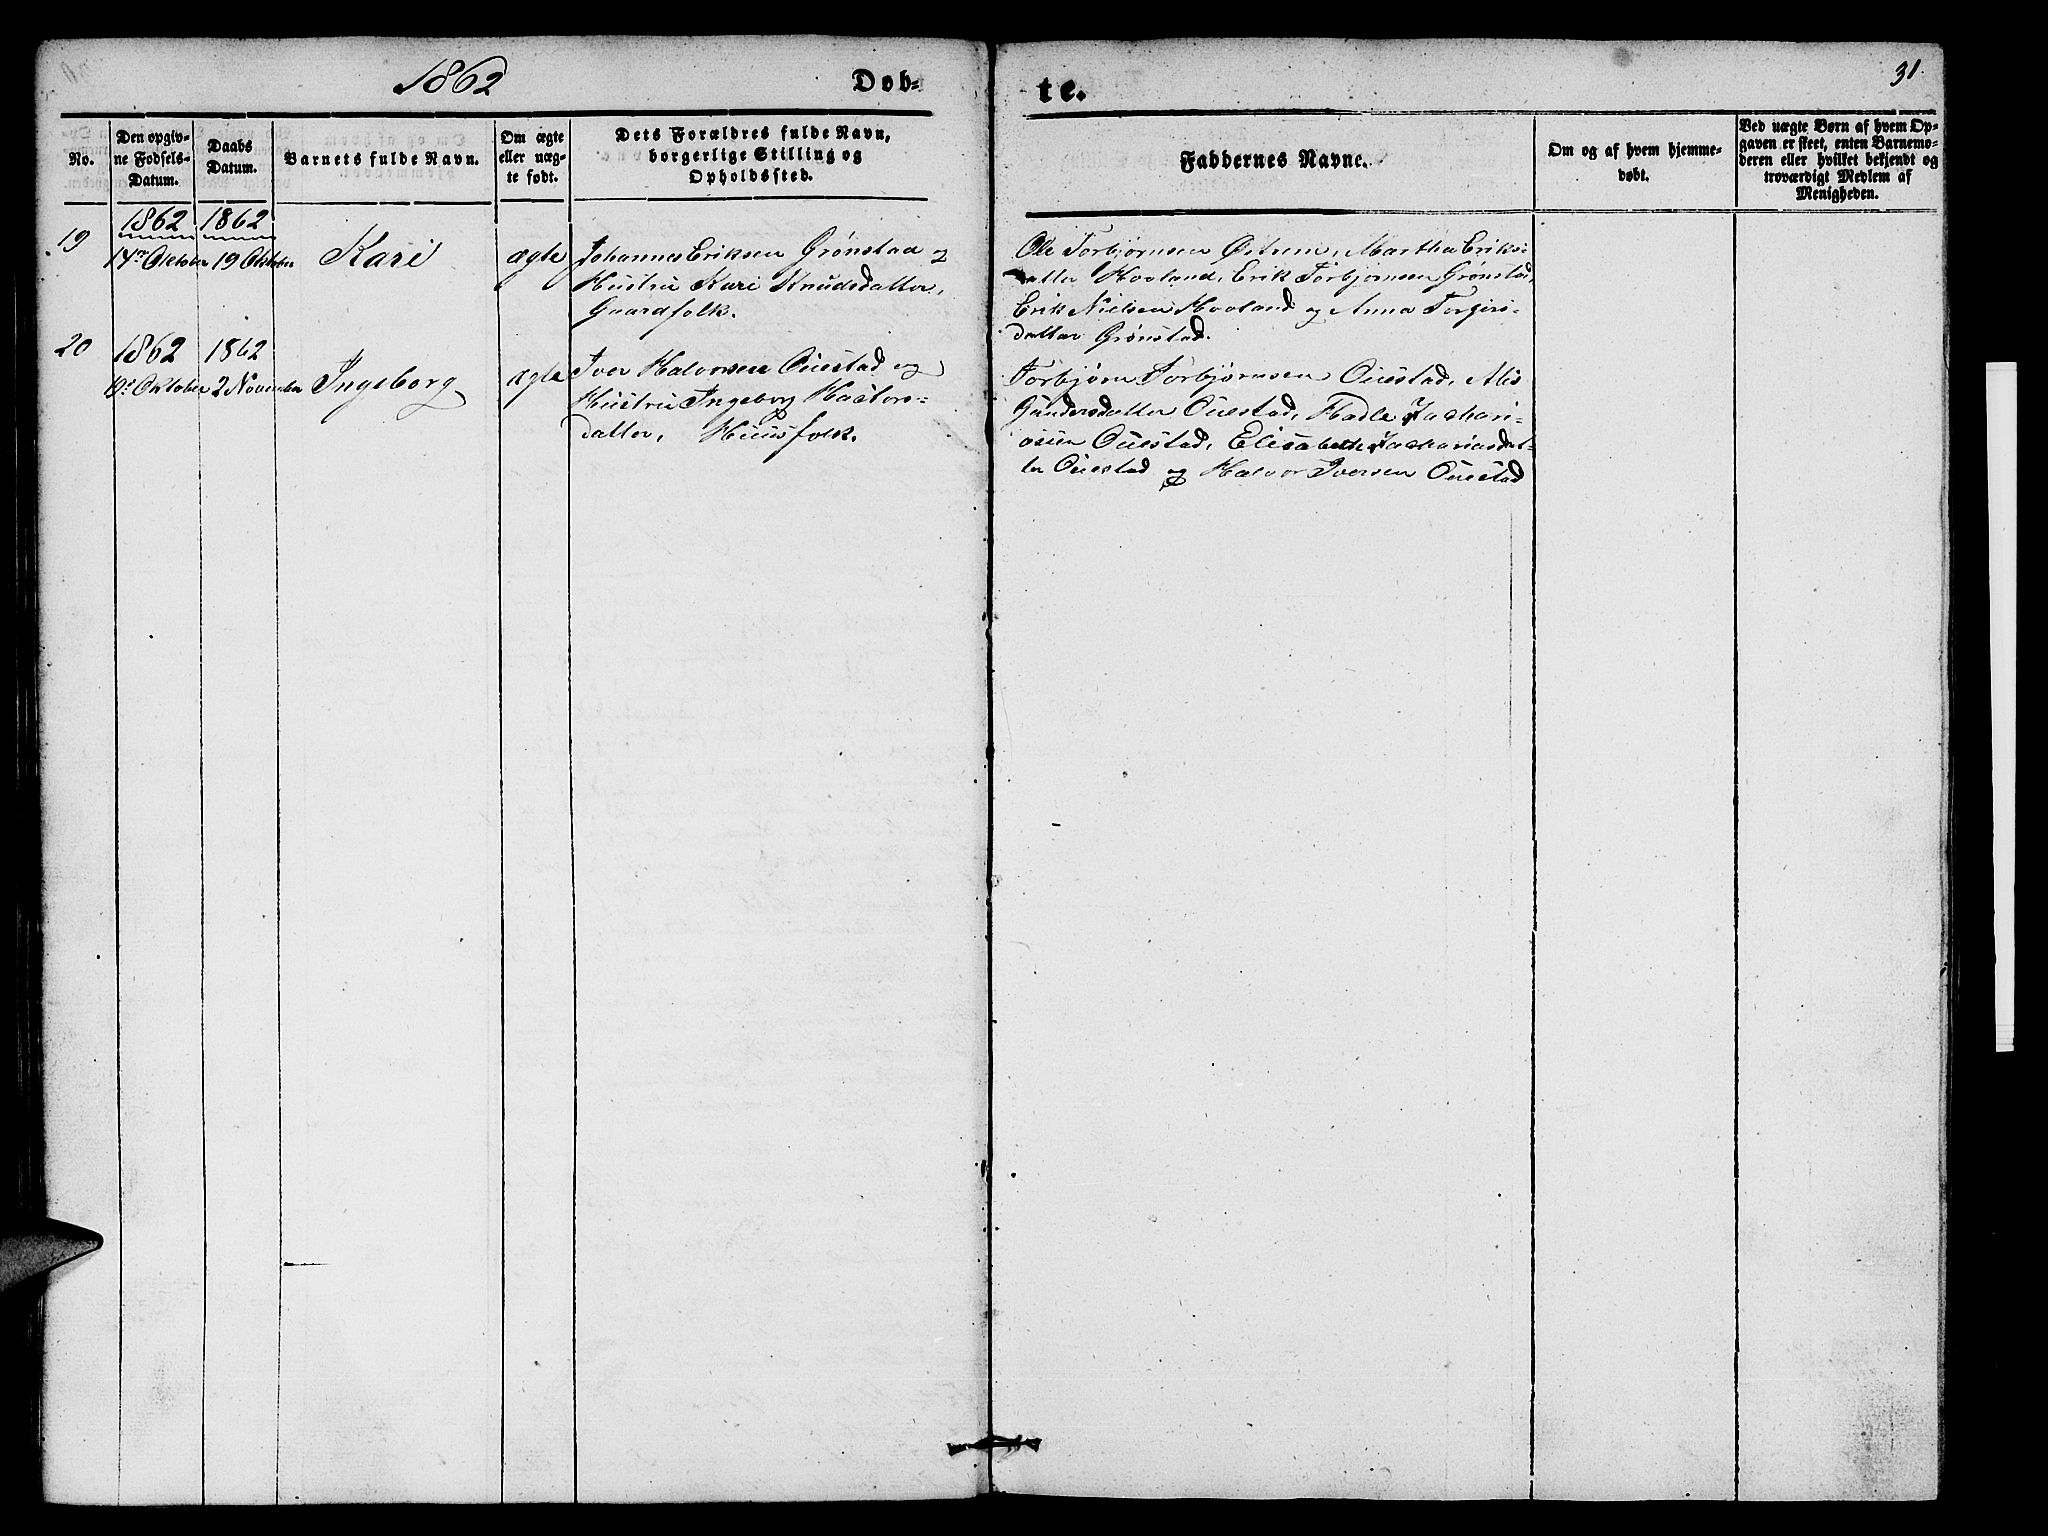 1862
Døb=
te.
31.
No.
Den opgiv=
ne Fødsels=
Datum.
Daabs
Datum.
Barnets fulde Navn.
Om ægte
eller uæg=
te født.
Dets Forældres fulde Navn,
borgerlige Stilling og
Opholdssted.
Faddernes Navne.
Om og af hvem hjemme=
døbt.
Ved uægte Børn af hvem Op=
gaven er skeet, enten Barnemo=
deren eller hvilket bekjendt og
troværdigt Medlem af
Menigheden.
19
1862
Oktober
1862
19 Oktober
Kari
ægte
Johannes Eriksen Grønstad og
Hustru Kari Knudsdatter,
Gaardfolk.
Ole Torbjørnsen Østrem, Martha Eriks=
datter Hovland, Erik Torbjørnsen Grønstad,
Erik Nielsen Hovland og Anna Torgers=
datter Grønstad.
20
1862
19de Oktober
1862
2 November
Ingeborg
ægte
Iver Halvorsen Ouestad og
Hustru Ingeborg Hastors=
datter, Huusfolk.
Torbjørn Torbjørnsen Ouestad,
Gundersdatter Ouestad, Hadle Zachari=
asen Ouestad, Elisabeth Zachariasdat=
ter Ouestad og Halvor Iversen Ouestad